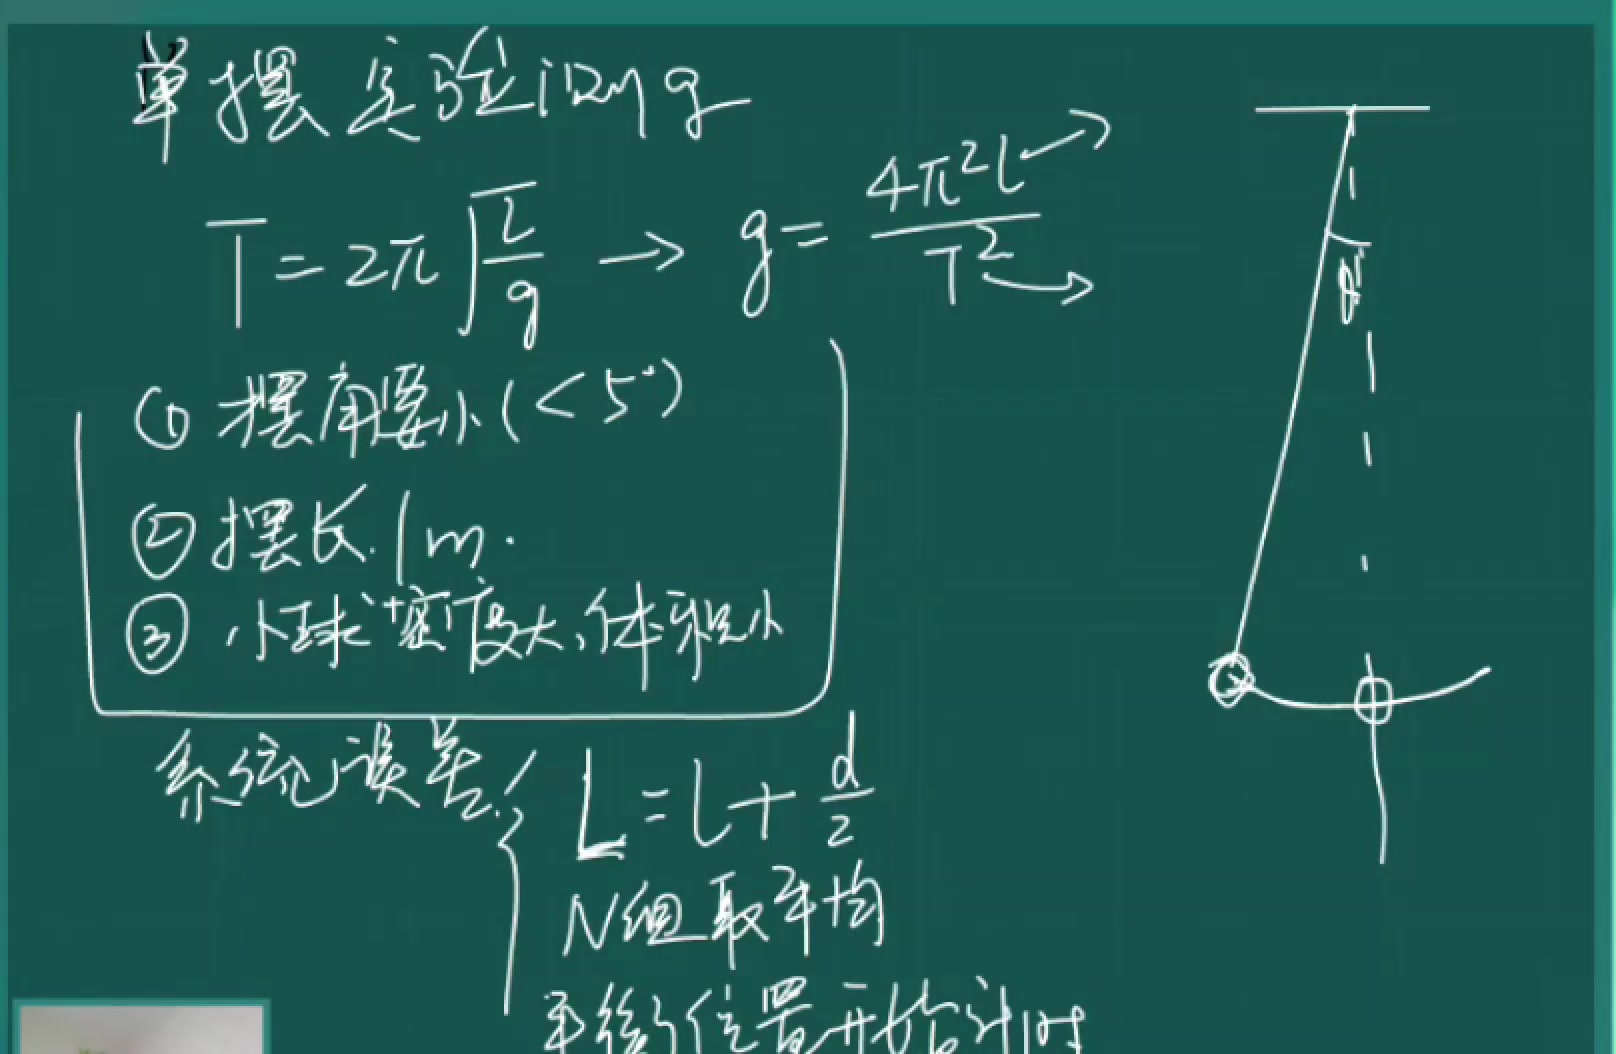 单摆实验测g
T=2π√(L/g) → g=4π²L/T²
① 摆角要小(<5°)
② 摆长.1m.
③ 小球密度大,体积小
θ
系统误差:
L=l+d/2
N组取平均
平衡位置开始计时